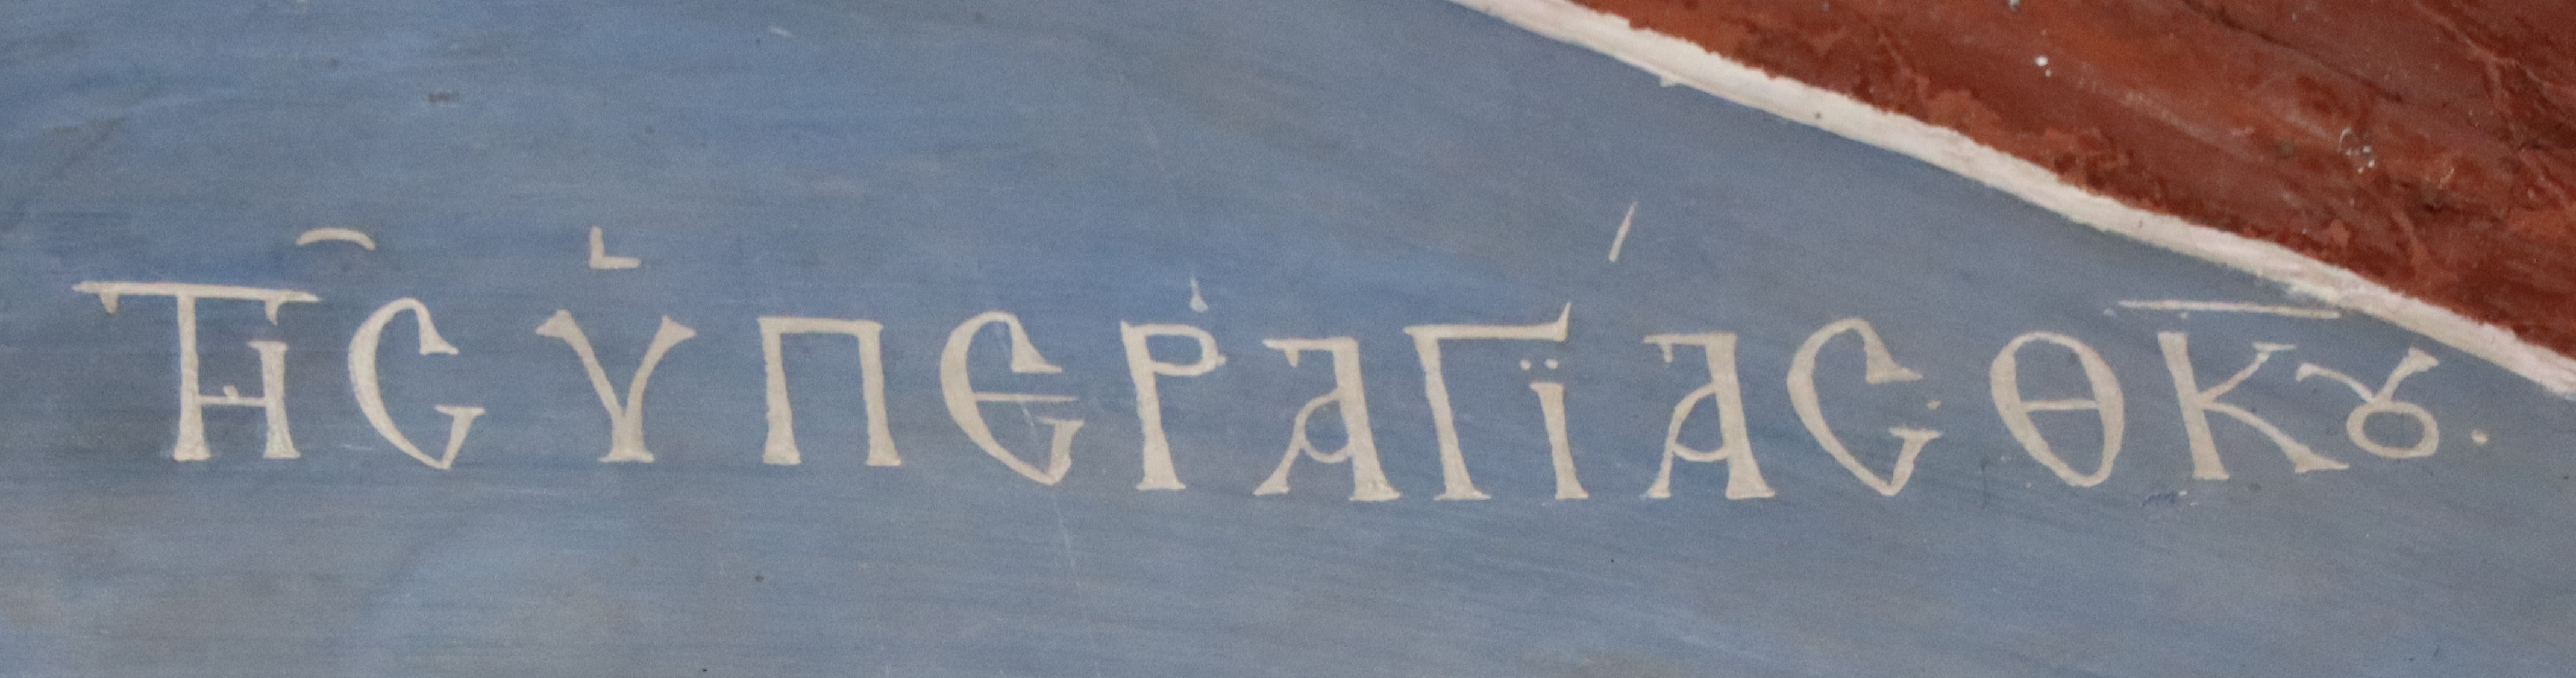 ΤΗ͂Ϲ ὙΠΕΡΑΓΪΆϹ ΘΚ̅Ȣ.